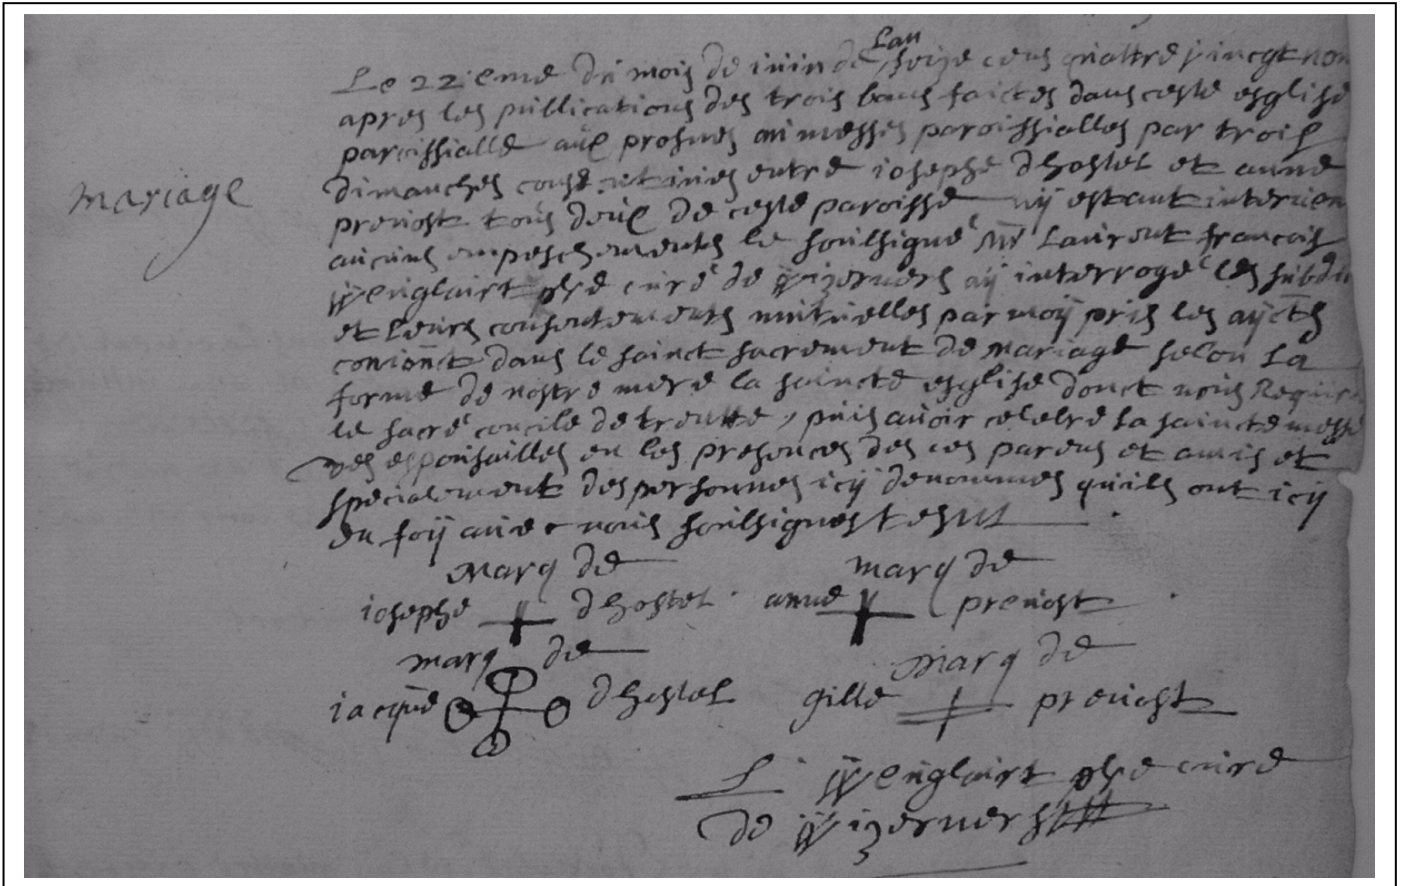 Lan
Le 22ieme du mois de iuin de seize cens quattre vincgt non
apres les publications des trois bans faictes dans ceste esglise
paroissialle aux prosnes messes paroissialles par trois
mariage
dimanches entre iosephe dhostel et anne
prevost tous deux de ceste paroisse nÿ estant
aucuns empeschements le soulsigné Mr Laurent francois
Wenglairt curé de Wizernes aÿ interrogé les subdi
et leurs consentements mutuelles par moÿ pris les aÿ
coniont dans le sainct sacrement de Mariage selon La
forme de nostre mere la saincte esglise donct nous Requir
le sacré concile de trente, puis avoir celebré la saincte messe
des espousailles en les presences des ces parens et amis et
specialement des personnes icÿ denommes quils ont icÿ
en foÿ avec nous soulsignes
Marq de marq de
iosephe dhostel anne prevost
marq de Marq de
iacque dhostel gille prevost
L Wenglairt curé
de Wizernes